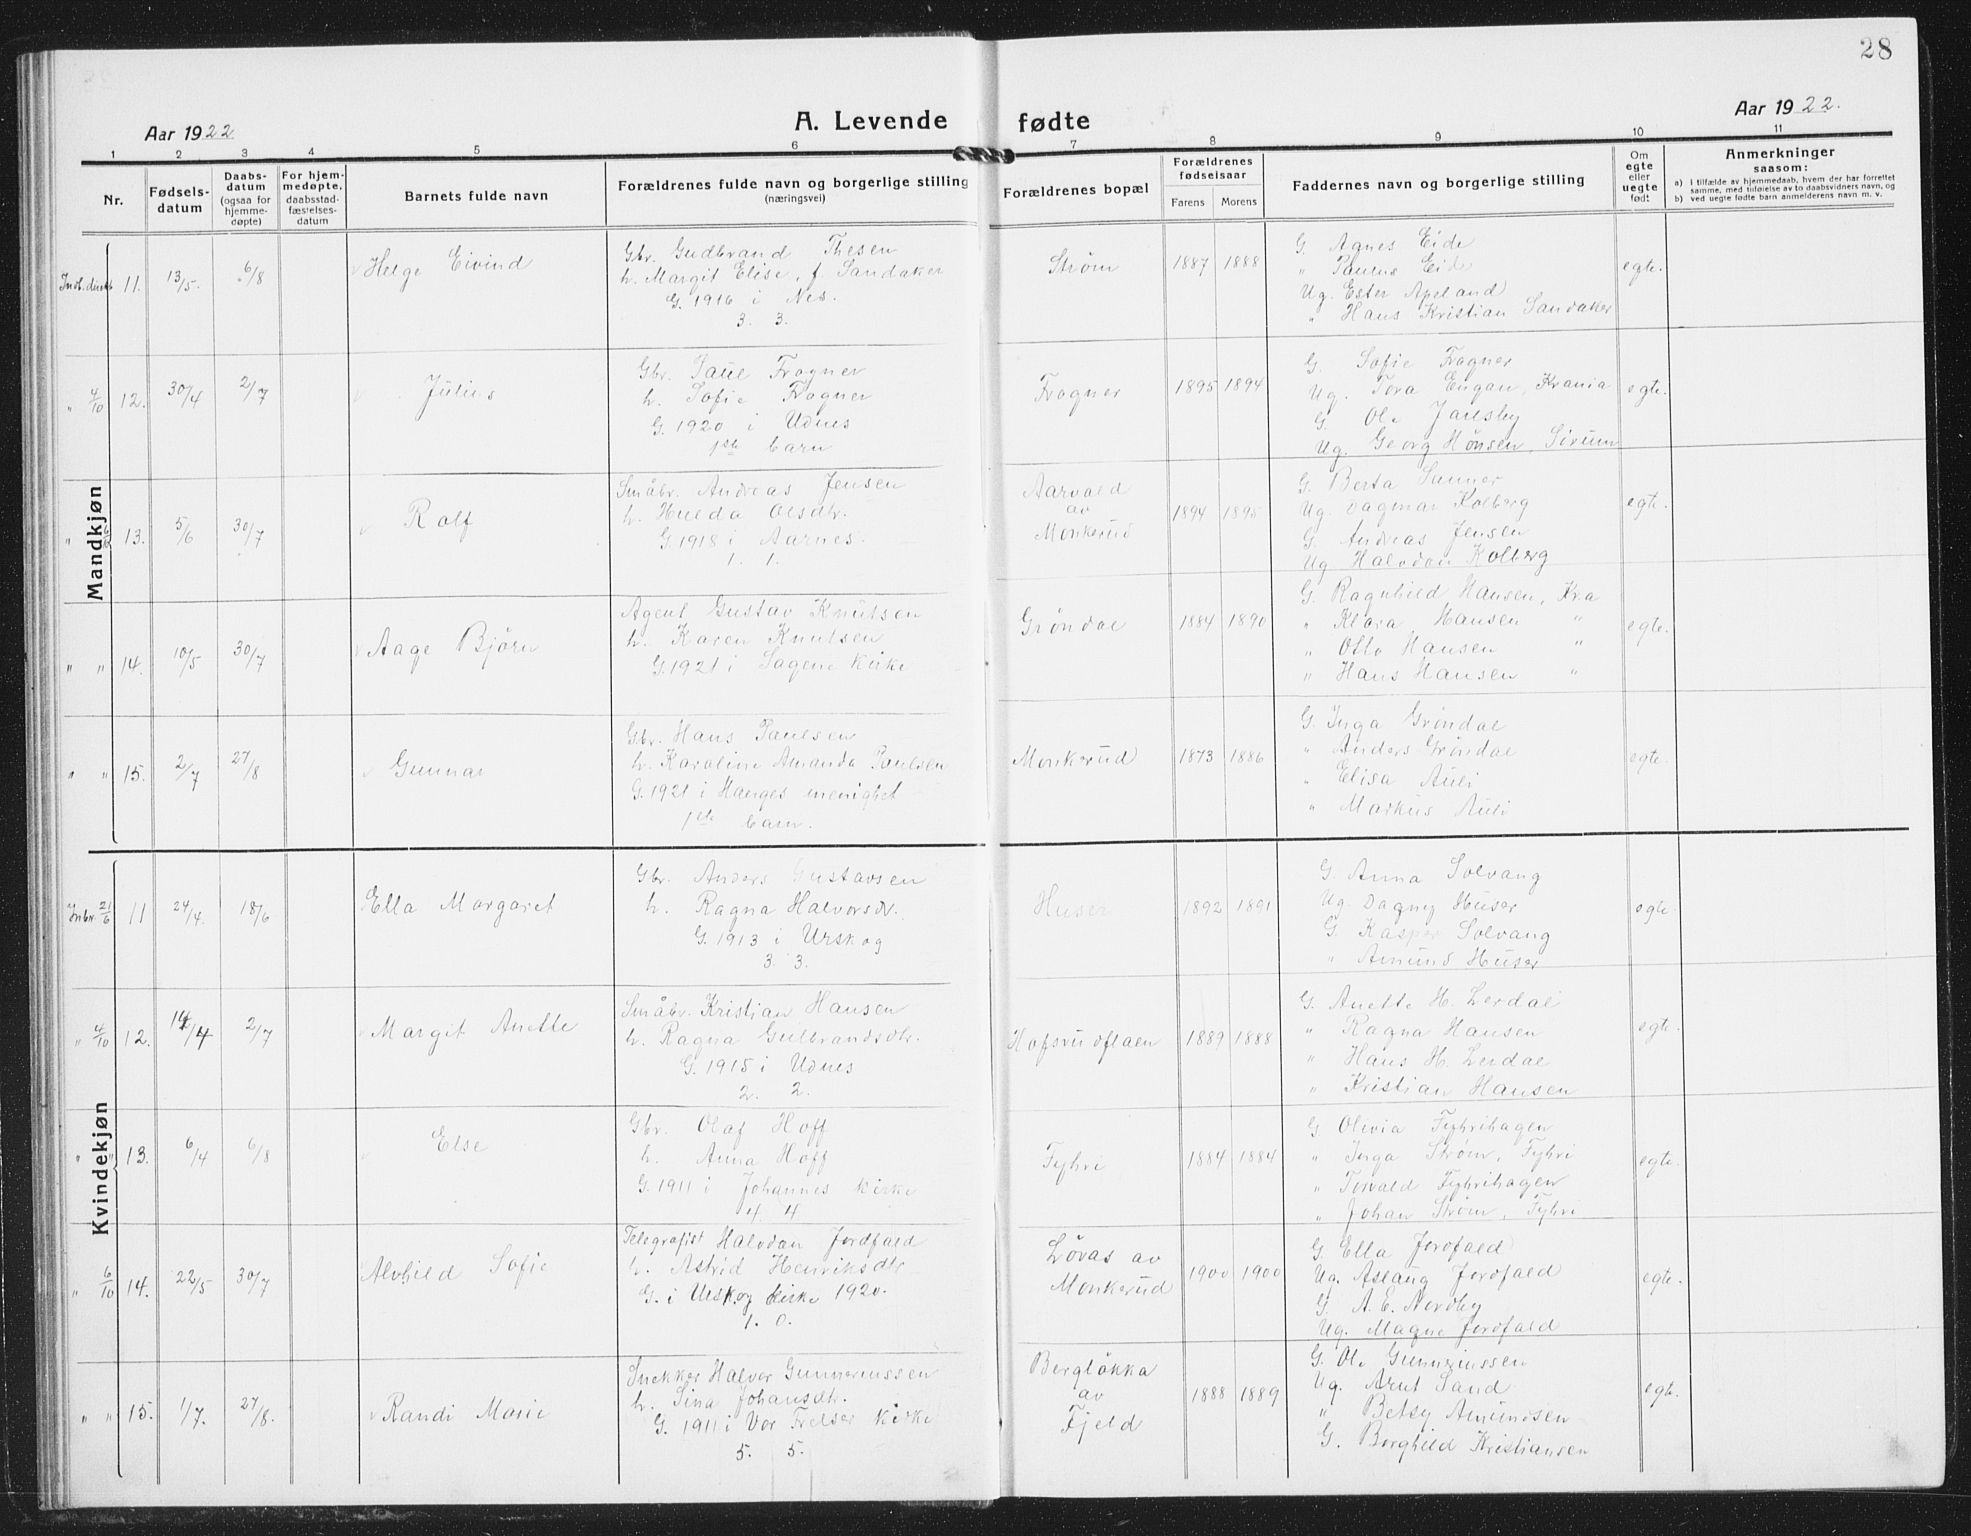 28
Aar 1922
A. Levende fødte
Aar 1922.
1 2 3 4 5 6 7 8 9 10 11
Nr.
Fødsels-
datum
Daabs-
datum
(ogsaa for
hjemme-
døpte)
For hjem-
medøpte,
daabsstad-
fæstelses-
datum
Barnets fulde navn
Forældrenes fulde navn og borgerlige stilling
(næringsvei)
Forældrenes bopæl
Forældrenes
fødselsaar
Farens Morens
Faddernes navn og borgerlige stilling
Om
egte
eller
uegte
født
Anmerkninger
saasom:
a) i tilfælde av hjemmedaab, hvem der har forrettet
samme, med tilføielse av to daabsvidners navn, og
b) ved uegte fødte barn anmelderens navn m. v.
Mandkjøn
11. 13/5. 6/8 Helge Eivind
Gbr. Gudbrand Thesen
h. Margit Elise, f. Sandaker
G. 1916 i Nes.
3. 3.
Strøm 1887 1888
G. Agnes Eide
" Paulus Eide
Ug. Ester Apeland
" Hans Kristian Sandaker
egte.
" 4/10 12. 30/4 2/7 Julius
Gbr. Paul Frogner
h. Sofie Frogner
G. 1920 i Udnes
1ste barn
Frogner 1895 1894
G. Sofie Frogner
Ug. Tora Engan, Krania
G. Ole Jarlsby
Ug. Georg Hønsen, Sørum
egte.
" 13. 5/6 30/7 Rolf
Småbr. Andreas Jensen
h. Hulda Olsdtr.
G. 1918 i Aarnes.
1. 1.
Aarvold
av
Monkerud
1894 1895
G. Berta Sunner
Ug. Dagmar Kolberg
G. Andreas Jensen
Ug. Halvdan Kolberg
egte.
" " 14. 10/5 30/7 Aage Bjørn
Agent Gustav Knutsen
h. Karen Knutsen
G. 1921 i Sagene Kirke
Grøndal 1884 1890
G. Ragnhild Hansen, Kra
" Klara Hansen "
" Otto Hansen "
" Hans Hansen "
egte.
" " 15. 2/7 27/8 Gunnar
Gbr. Hans Paulsen
h. Karoline Amanda Paulsen
G. 1921 i Hauges menighet
1ste barn.
Monkerud 1873 1886
G. Inga Grøndal
" Anders Grøndal
" Elisa Auli
" Markus Auli
egte.
Kvindekjøn
Inbr. 21/6 11 24/4. 18/6 Ella Margaret
Gbr. Anders Gustavsen
h. Ragna Halvorsdr.
G. 1913 i Urskog
3 3.
Huser 1892 1891
G. Anna Solvang
Ug. Dagny Huser
G. Kasper Solvang
" Amund Huser
egte.
" 4/10 12. 14/4 2/7 Margit Anette
Småbr. Kristian Hansen
h. Ragna Gulbrandsdtr.
G. 1915 i Udnes
2. 2.
Hofsrudflaen 1889 1888
G. Anette H. Lerdal
" Ragna Hansen
" Hans H. Lerdal
" Kristian Hansen
egte.
" " 13. 6/4 6/8 Else
Gbr. Olaf Hoff
h. Anna Hoff
G. 1911 i Johannes Kirke
4. 4
Fyhri 1884 1884
G Olivia Fyhrihagen
" Inga Strøm, Fyhri
" Torvald Fyhrihagen
" Johan Strøm, Fyhri
egte.
" 6/10 14. 22/5 30/7 Alvhild Sofie
Telegrafist Halvdan Jordfald
h. Astrid Henriksdtr.
G. i Urskog kirke 1920.
1. 0.
Løvas av
Monkerud
1900 1900
G. Ella Jordfald
Ug. Aslaug Jordfald
G. A. E. Nordby
Ug. Magne Jordfald
egte.
" " 15. 1/7. 27/8. Randi Marie
Snekker Halvor Gunneriussen
h. Sina Johansdtr.
G. 1911 i Vor Frelser Kirke
5. 5.
Bergløkka
av
Fjeld
1888 1889
G. Ole Gunneriussen
Ug. Arnt Sand
" Betsy Amundsen
G. Borghild Kristiansen
egte.